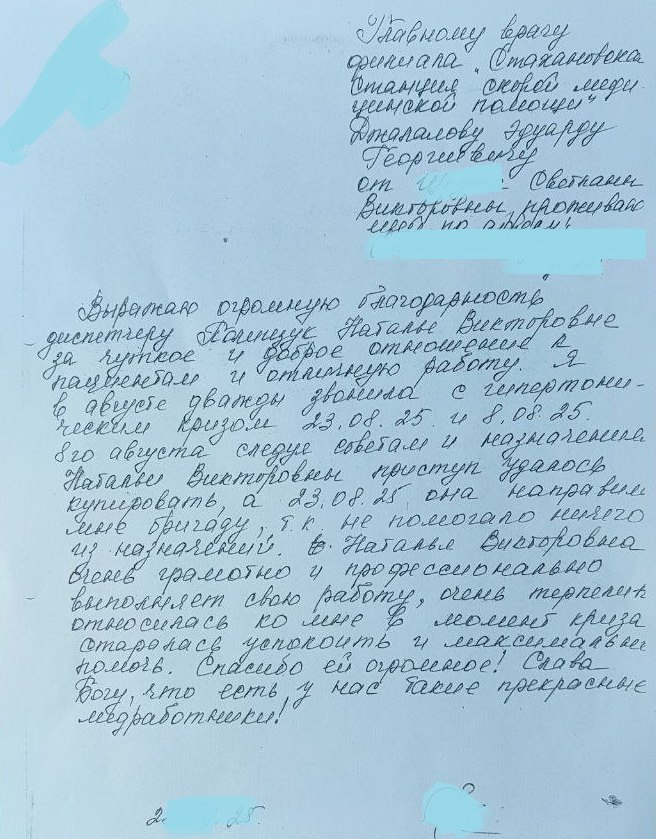 Главному врачу
филиала „Стахановска
Станция скорой меди
цинской помощи"
Джалалову Эдуарду
Георгиевичу
от Светланы
Викторовны, проживаю
щей по адресу:
Выражаю огромную благодарность
диспетчеру Полищук Наталье Викторовне
за чуткое и доброе отношение к
пациентам и отличную работу. Я
в августе дважды звонила с гипертони-
ческим кризом 23.08.25 и 8.08.25.
8го августа следуя советам и назначения
Натальи Викторовны приступ удалось
купировать, а 23.08.25 она направил
мне бригаду, т.к. не помогало ничего
из назначений. Наталья Викторовна
очень грамотно и профессионально
выполняет свою работу, очень терпелив
относилась ко мне в момент криза
старалась успокоить и максимальн
помочь. Спасибо ей огромное! Слава
Богу, что есть у нас такие прекрасные
медработники!
2. 25.